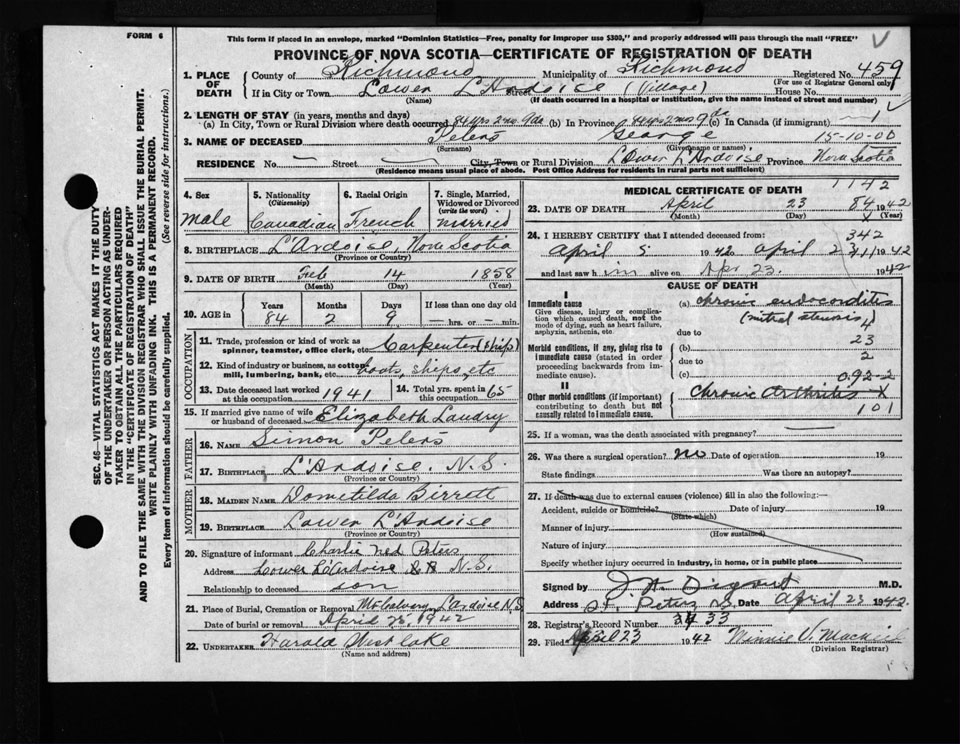 FORM 6
This form if placed in an envelope, marked "Dominion Statistics—Free, penalty for improper use $300," and properly addressed will pass through the mail "FREE"
PROVINCE OF NOVA SCOTIA—CERTIFICATE OF REGISTRATION OF DEATH
1. PLACE OF DEATH County of Richmond Municipality of Richmond Registered No. 459
(For use of Registrar General only)
If in City or Town Lower L'Ardoise Street (Village) House No.
(Name) (If death occurred in a hospital or institution, give the name instead of street and number)
2. LENGTH OF STAY (in years, months and days)
(a) In City, Town or Rural Division where death occurred 84 yrs 2 mos 9 da (b) In Province 84 yrs 2 mos 9 da (c) In Canada (if immigrant) — 1
3. NAME OF DECEASED Peters George 15-10-00
(Surname) (Given name or names)
RESIDENCE No. — Street — City, Town or Rural Division Lower L'Ardoise Province Nova Scotia
(Residence means usual place of abode. Post Office Address for residents in rural parts not sufficient)
4. Sex Male
5. Nationality (Citizenship) Canadian
6. Racial Origin French
7. Single, Married, Widowed or Divorced (write the word) Married
8. BIRTHPLACE L'Ardoise, Nova Scotia
(Province or Country)
9. DATE OF BIRTH Feb 14 1858
(Month) (Day) (Year)
10. AGE in Years Months Days If less than one day old
84 2 9 — hrs. or — min.
OCCUPATION
11. Trade, profession or kind of work as spinner, teamster, office clerk, etc. Carpenter (ship)
12. Kind of industry or business, as cotton mill, lumbering, bank, etc. boats, ships, etc
13. Date deceased last worked at this occupation 1941
14. Total yrs. spent in this occupation 65
15. If married give name of wife or husband of deceased Elizabeth Landry
FATHER
16. NAME Simon Peters
17. BIRTHPLACE L'Ardoise, N.S.
(Province or Country)
MOTHER
18. MAIDEN NAME Dometilda
19. BIRTHPLACE Lower L'Ardoise
(Province or Country)
20. Signature of informant Charlie Ned Peters
Address Lower L'Ardoise N.S.
Relationship to deceased son
21. Place of Burial, Cremation or Removal Mt Calvary, L'Ardoise N.S.
Date of burial or removal April 25, 1942
22. UNDERTAKER Harold Westlake
(Name and address)
MEDICAL CERTIFICATE OF DEATH 1142
23. DATE OF DEATH April 23 84 1942
(Month) (Day) X (Year)
24. I HEREBY CERTIFY that I attended deceased from: 342
April 5 1942 to April 23 1942
and last saw him alive on Apr 23. 1942
CAUSE OF DEATH
I
Immediate cause
Give disease, injury or complication which caused death, not the mode of dying, such as heart failure, asphyxia, asthenia, etc.
(a) chronic endocarditis
(mitral stenosis) 4
due to
Morbid conditions, if any, giving rise to immediate cause (stated in order proceeding backwards from immediate cause).
(b) 23
due to 2
(c) 092-2
II
Other morbid conditions (if important) contributing to death but not causally related to immediate cause.
chronic arthritis X
101
25. If a woman, was the death associated with pregnancy? —
26. Was there a surgical operation? no Date of operation 19
State findings Was there an autopsy?
27. If death was due to external causes (violence) fill in also the following:—
Accident, suicide or homicide? Date of injury 19
(State which)
Manner of injury
(How sustained)
Nature of injury
Specify whether injury occurred in industry, in home, or in public place
Signed by M.D.
Address St. Peters N.S. Date April 23 1942.
28. Registrar's Record Number 33
29. Filed April 23 1942 Minnie V.
(Division Registrar)
SEC. 46—VITAL STATISTICS ACT MAKES IT THE DUTY
OF THE UNDERTAKER OR PERSON ACTING AS UNDER-
TAKER TO OBTAIN ALL THE PARTICULARS REQUIRED
IN THE "CERTIFICATE OF REGISTRATION OF DEATH"
AND TO FILE THE SAME WITH THE DIVISION REGISTRAR WHO SHALL ISSUE THE BURIAL PERMIT.
WRITE PLAINLY WITH UNFADING INK. THIS IS A PERMANENT RECORD.
Every item of information should be carefully supplied. (See reverse side for instructions.)